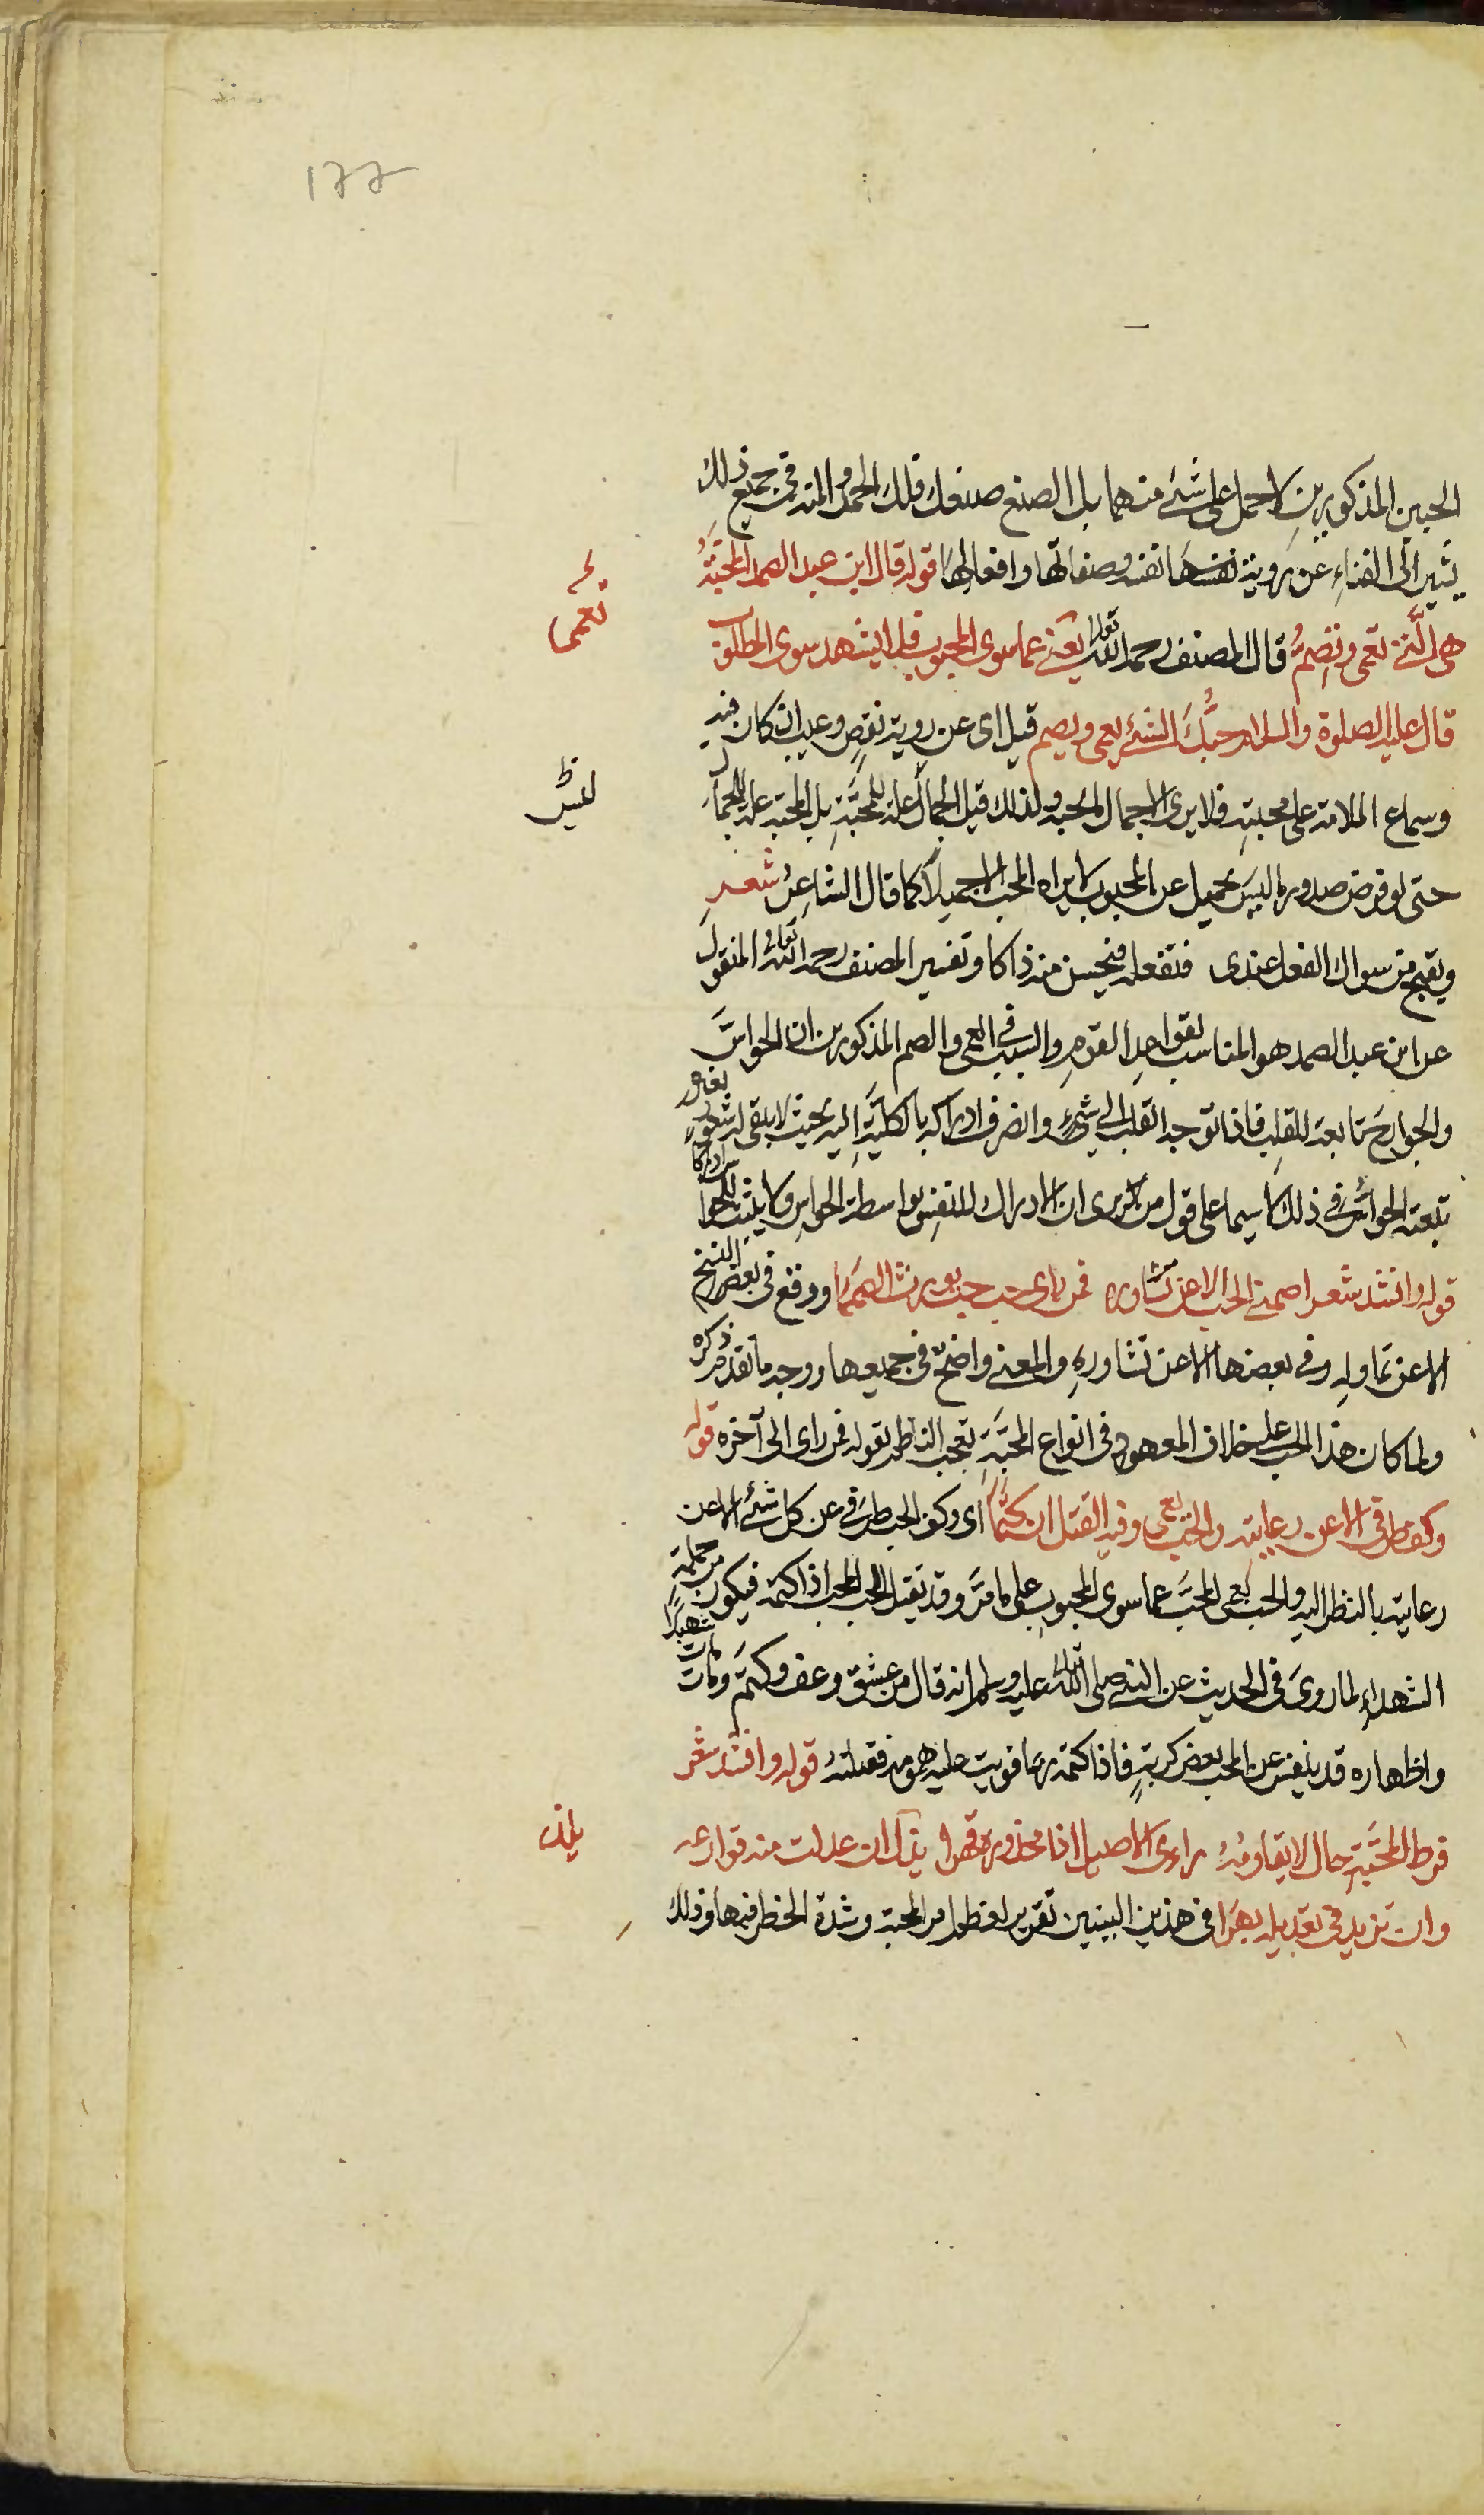 ١٢٢
الحبين المذكورين لا احمل على شئ منهما بل الصنع صنعك فلك الحمد والمنه فى جميع ذلك
يشير الى الفناءِ عن روية نفسه وصفاتها وافعالها قوله قال ابن عبد الصمد المحبّةُ
هى الّتى تعمى وتصِمُّ قال المصنف رحمه الله تعالى يعنى عما سوى المحبوب فلا يشهد سوى المطلوب
قال عليه الصلوة والسلام حبُّكَ الشئ يعمى ويصم قيل اى عن روية نقصٍ وعيب ان كان فيه
وسماع الملامة على محبته فلا يرى الا جمال المحبوب ولذلك قيل الجمال علة للمحبّةِ بل المحبة علة للجمال
حتى لو فرض صدور ما ليس بجميل عن المحبوب لا يراه المحب الا جميلاً كما قال الشاعِرُ شعر
ويقبح من سواك الفعل عندى فتفعله فيحسن منه ذاكا وتفسير المصنف رحمه الله تعالى المنقول
عن ابن عبد الصمد هو المناسب لقواعد القومِ والسبب فى العمى والصم المذكورين ان الحواسَّ
والجوارحَ تابعة للقلب فاذا توجه القلب الى شئٍ وانصرف ادراكه بالكلّيّةِ اليه بحيث لا يبقى له شعورٌ بغيره
تبعته الحواسُّ فى ذلك لا سيما على قول من يرى ان الادراك للنفسِ بواسطة الحواسِ ولا يثبت للحواس ادراكًا
قوله وانشد شعر اصمنى الحب الا عن تساوره فمن راى حب حب يورث الصمما ووقع فى بعض النسخ
الا عن تماوله وفى بعضها الا عن تشاورهِ والمعنى واضحٌ فى جميعها ووجه ما تقدم ذكره
ولما كان هذا الحب على خلاف المعهود فى انواع المحبّةِ تعجب الناظم بقوله فمن راى الى آخره قوله
وكف طرفى الا عن رعايته والحب يعمى وفيه القتل ان كتما اى وكف الحب طرفى عن كل شئٍ الا عن
رعايته بالنظر اليه والحب يعمى المحبَّ عما سوى المحبوب على ما مرّ وقد يقتل الحب المحب اذا كتمه فيكون من جملة
الشهداءِ لما روىَ فى الحديث عن النبى صلى الله تعالى عليه وسلم انه قال من عشق وعف وكتمَ ومات مات شهيدًا
واظهاره قد ينفس عن المحب بعض كربتهٍ فاذا كتمه ربما قويت عليه همومه فقتلته قوله وانشد شعر
فرط المحبّةِ حال لا يقاومُهُ راى الاصيل اذا محذوره قهرا يلذ ان عدلت منه قوارعه
وان تزيد فى تعديله بهرا فى هذين البيتين تقرير لعظم امر المحبة وشدة الخطر فيها وذلك
تعمى
يلذ